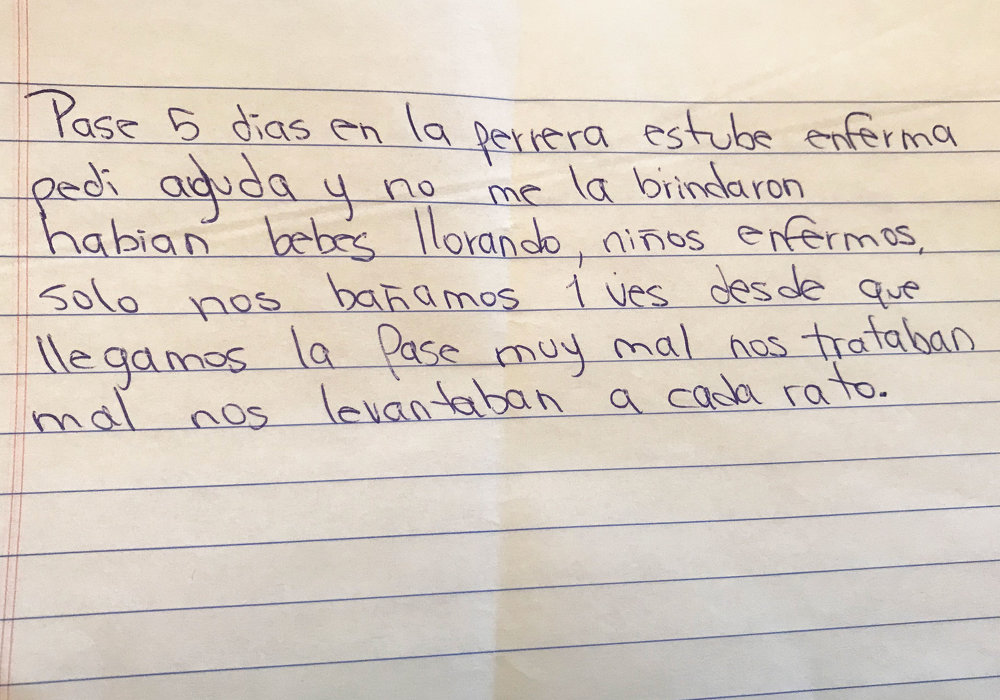 Pase 5 dias en la perrera estube enferma
pedi aguda y no me la brindaron
habian bebes llorando, niños enfermos,
solo nos bañamos 1 ves desde que
llegamos la Pase muy mal nos trataban
mal nos levantaban a cada rato.